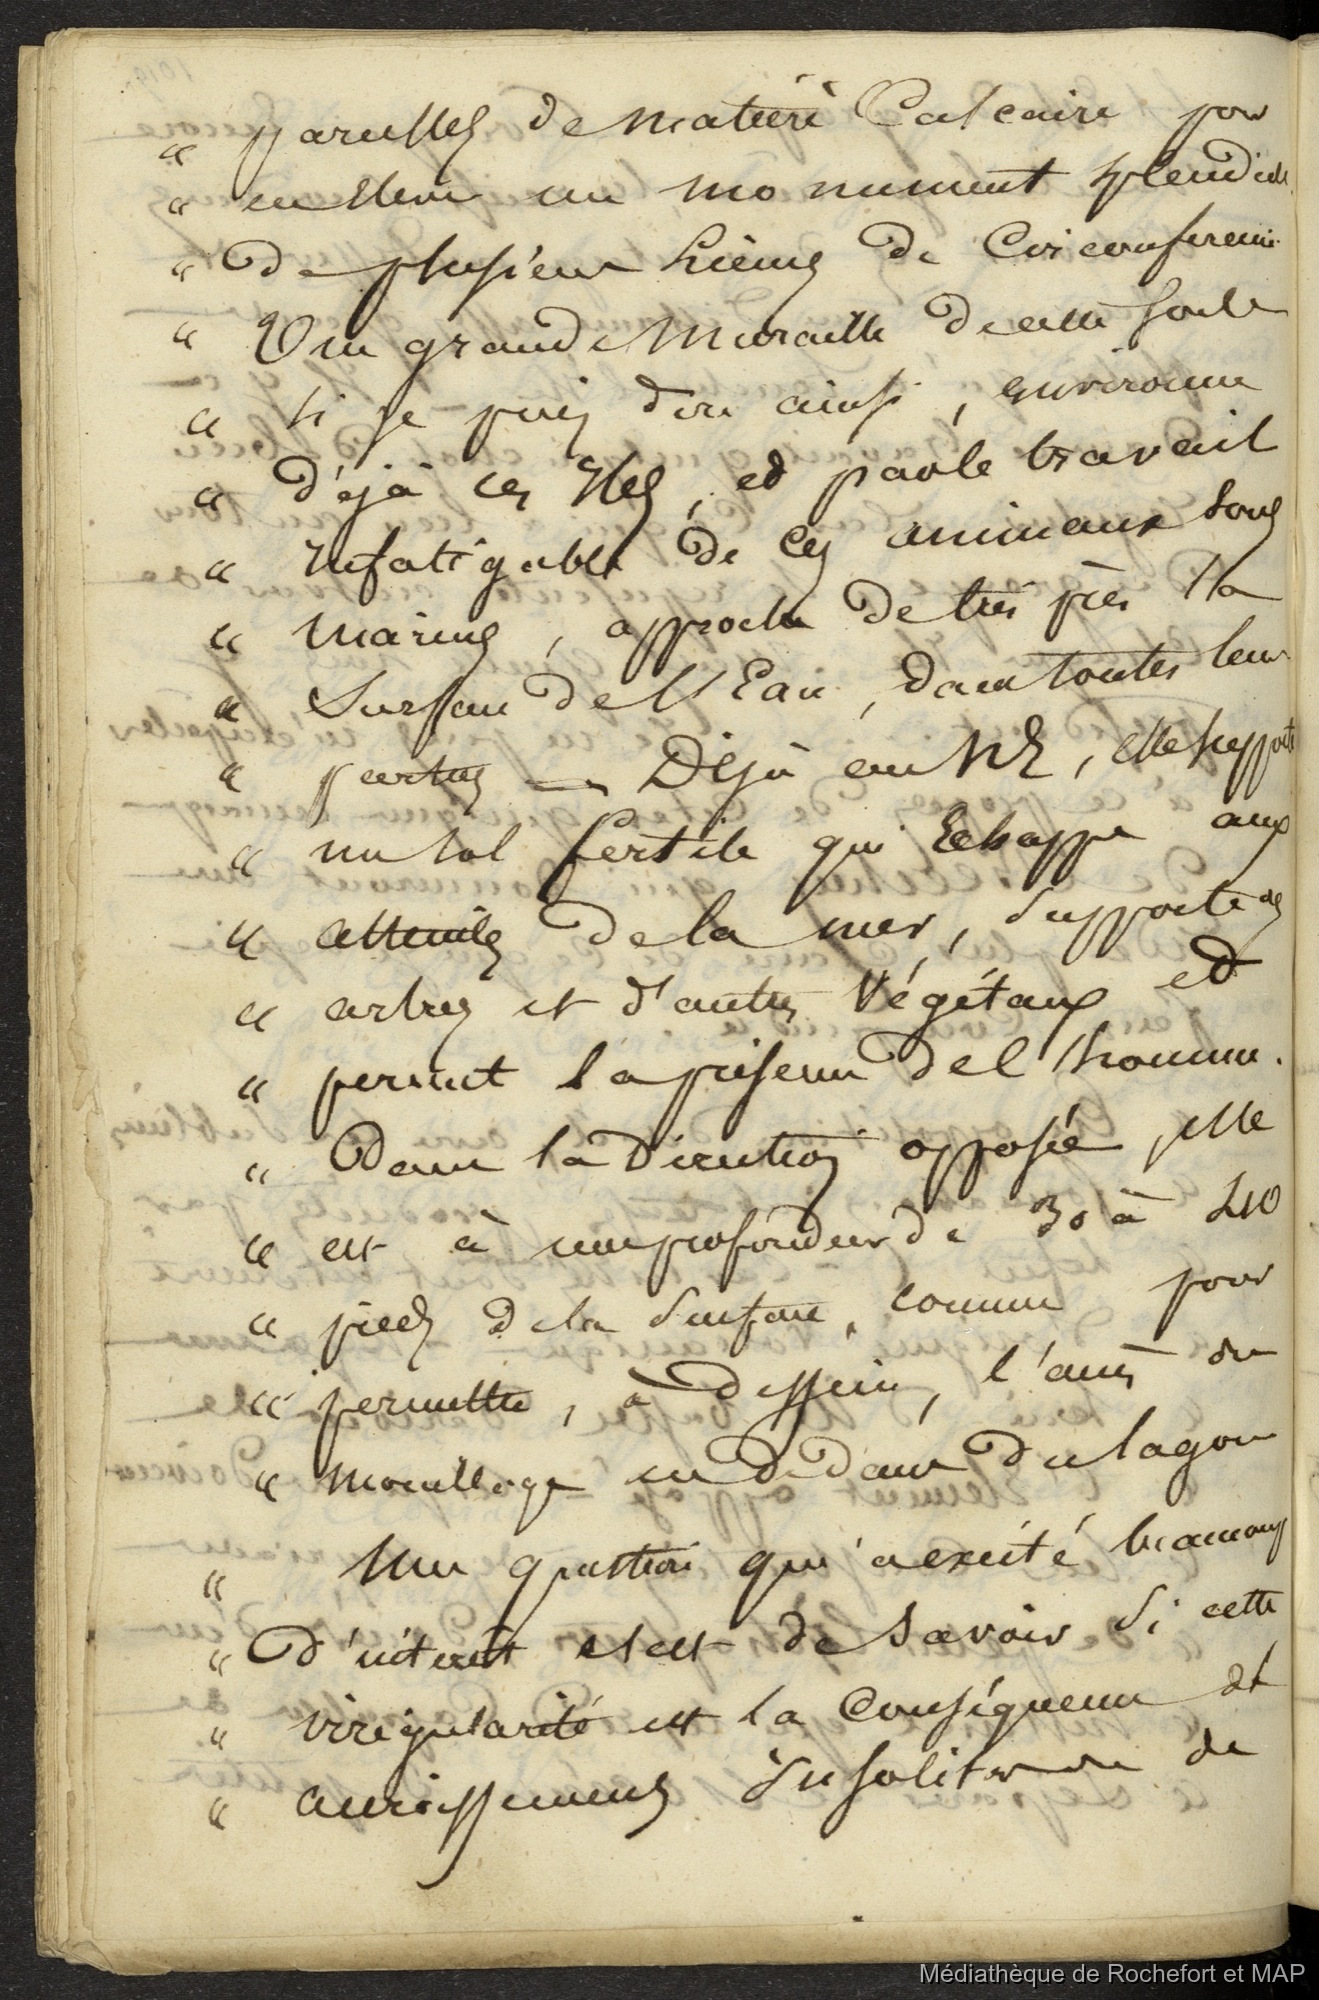 " parcelles de matière Calcaire pour
" en élever un monument splendide
" de plusieurs Lieues de Circonférence
" Une grande Muraille de cette sorte
" si je puis dire ainsi, environne
" d'éjà ces Iles, et par le travail
" Infatigable de Ces animaux sous
" marins, approche de très près la
" Surface de l'Eau, dans toutes leurs
" parties — Déjà au NE, elle supporte
" un sol fertile qui Echappe aux
" atteintes de la mer, supporte des
" arbres et d'autres Végétaux et
" permet la présence de l'homme.
" Dans la Direction opposée, elle
" est à une profondeur de 30 à 40
" pieds de la Surface, comme pour
" permettre, à dessein, l'accès du
" mouillage en dedans du lagon
" Une question qui a excité beaucoup
" d'intérêt est de savoir si cette
" irrégularité est la Conséquence de
" accroissements Insolites ou de
Médiathèque de Rochefort et MAP